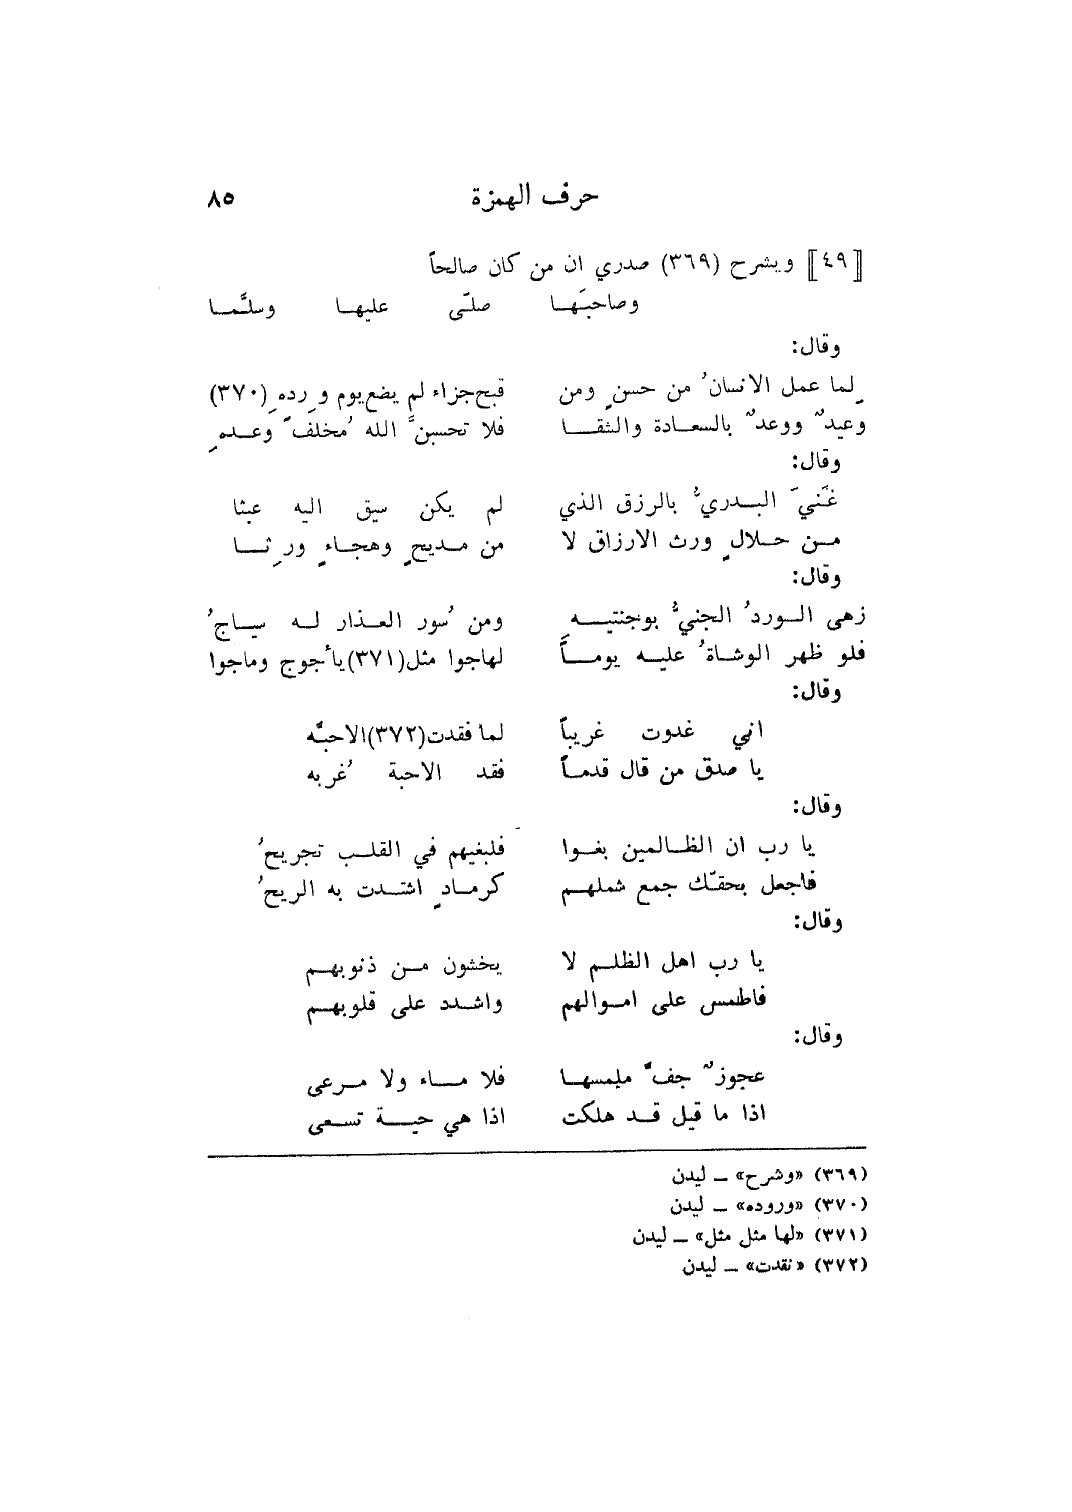 حرف الهمزة ٨٥
[٤٩] ويشرح (٣٦٩) صدري ان من كان صالحاً
وصاحبَها صلّى عليها وسلَّما
وقال:
لِما عمل الانسانُ من حسنٍ ومن قبح جزاء لم يضع يوم وِردهِ (٣٧٠)
وعيدٌ ووعدٌ بالسعادة والشقا فلا تحسبنَّ الله مُخلفَ وعدهِ
وقال:
غَنيَ البدريُّ بالرزق الذي لم يكن سيق اليه عبثا
من حلالٍ ورث الارزاق لا من مديحٍ وهجاءٍ ورِثا
وقال:
زهى الوردُ الجنيُّ بوجنتيهِ ومن سُور العذار له سياجُ
فلو ظهر الوشاةُ عليه يوماً لهاجوا مثل (٣٧١) يأجوج وماجوا
وقال:
اني غدوت غريباً لما فقدت (٣٧٢) الاحبَّه
يا صدق من قال قدماً فقد الاحبة غُربه
وقال:
يا رب ان الظالمين بغوا فلبغيهم في القلب تجريحُ
فاجعل بحقّك جمع شملهم كرمادٍ اشتدت به الريحُ
وقال:
يا رب اهل الظلم لا يخشون من ذنوبهم
فاطمس على اموالهم واشدد على قلوبهم
وقال:
عجوزٌ جفَّ ملمسها فلا ماء ولا مرعى
اذا ما قيل قد هلكت اذا هي حية تسعى
(٣٦٩) «وشرح» ــ ليدن
(٣٧٠) «وروده» ــ ليدن
(٣٧١) «لها مثل مثل» ــ ليدن
(٣٧٢) «نقدت» ــ ليدن